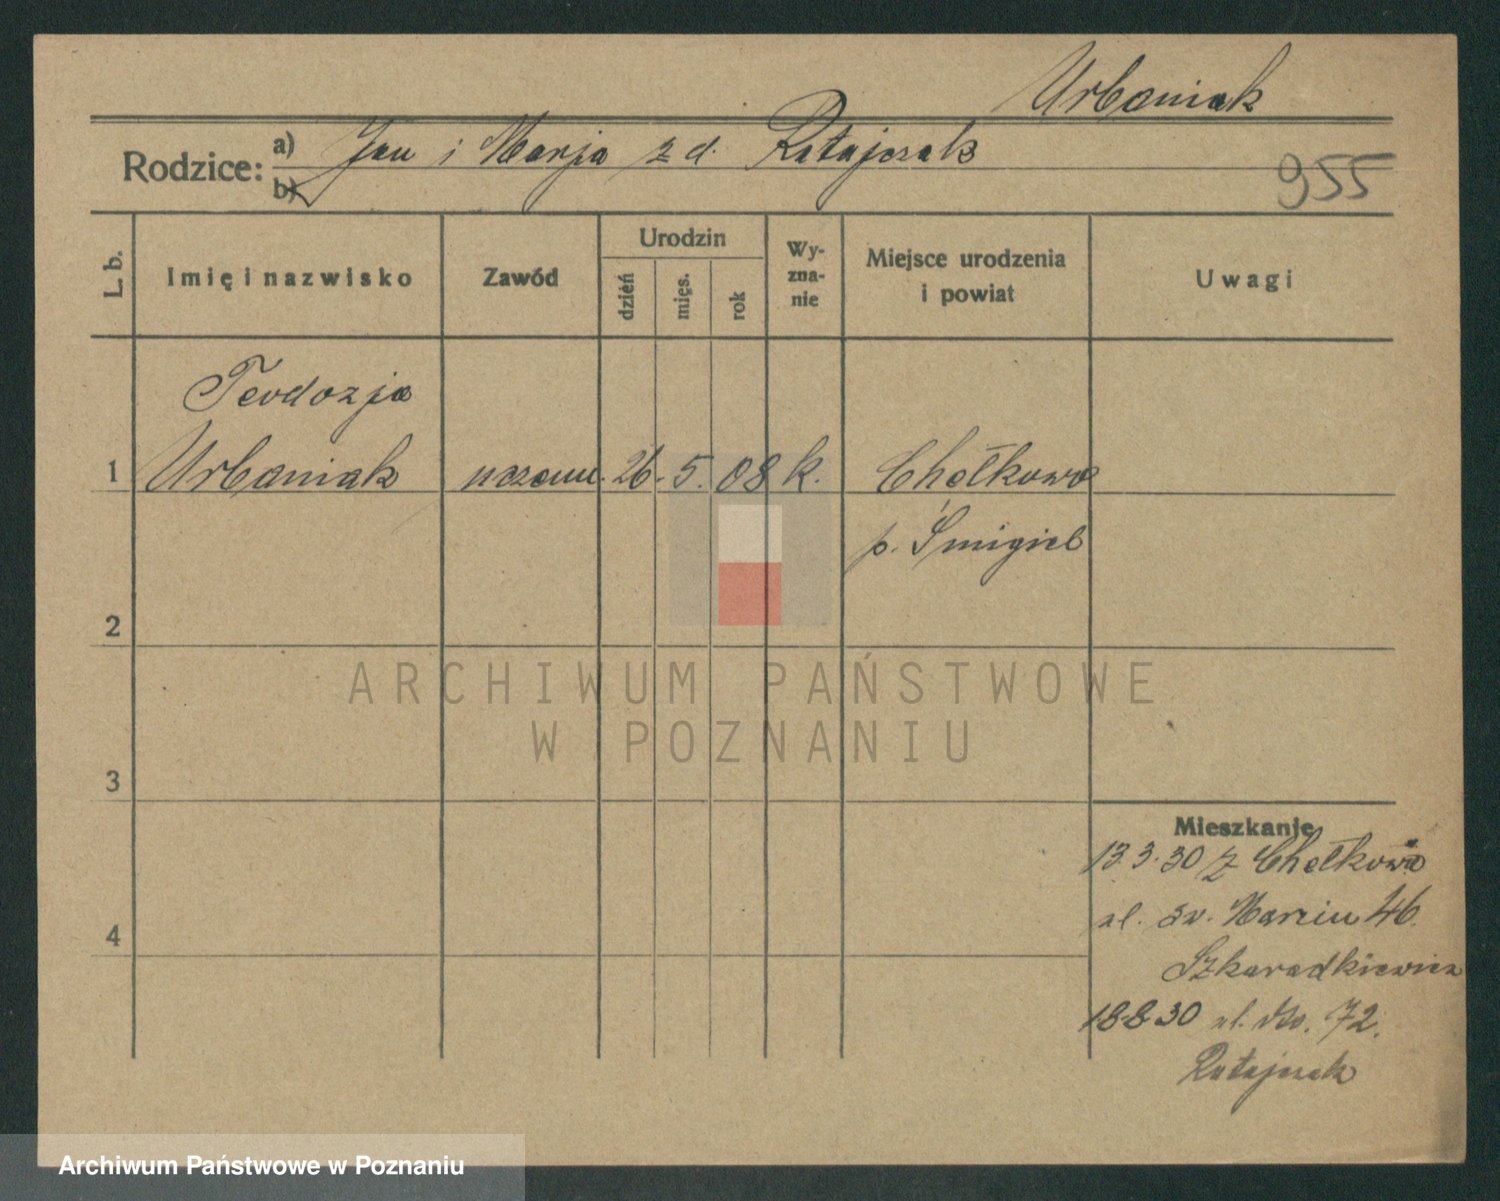 Urbaniak
Rodzice: a) Jan i Marja z d. Ratajczak
b)
955
L. b.
Imię i nazwisko
Zawód
Urodzin
dzień
mięs.
rok
Wy-
zna-
nie
Miejsce urodzenia
i powiat
Uwagi
Teodozja
1 Urbaniak uczenn. 26. 5. 08 k. Chełkowo
p. Śmigiel
2
3
4
ARCHIWUM PAŃSTWOWE
W POZNANIU
Mieszkanie
13.3.30 z Chełkowa
ul. św. Marcin 46.
Szkaradkiewicz
18.8.30 ul. dto. 72.
Ratajczak
Archiwum Państwowe w Poznaniu